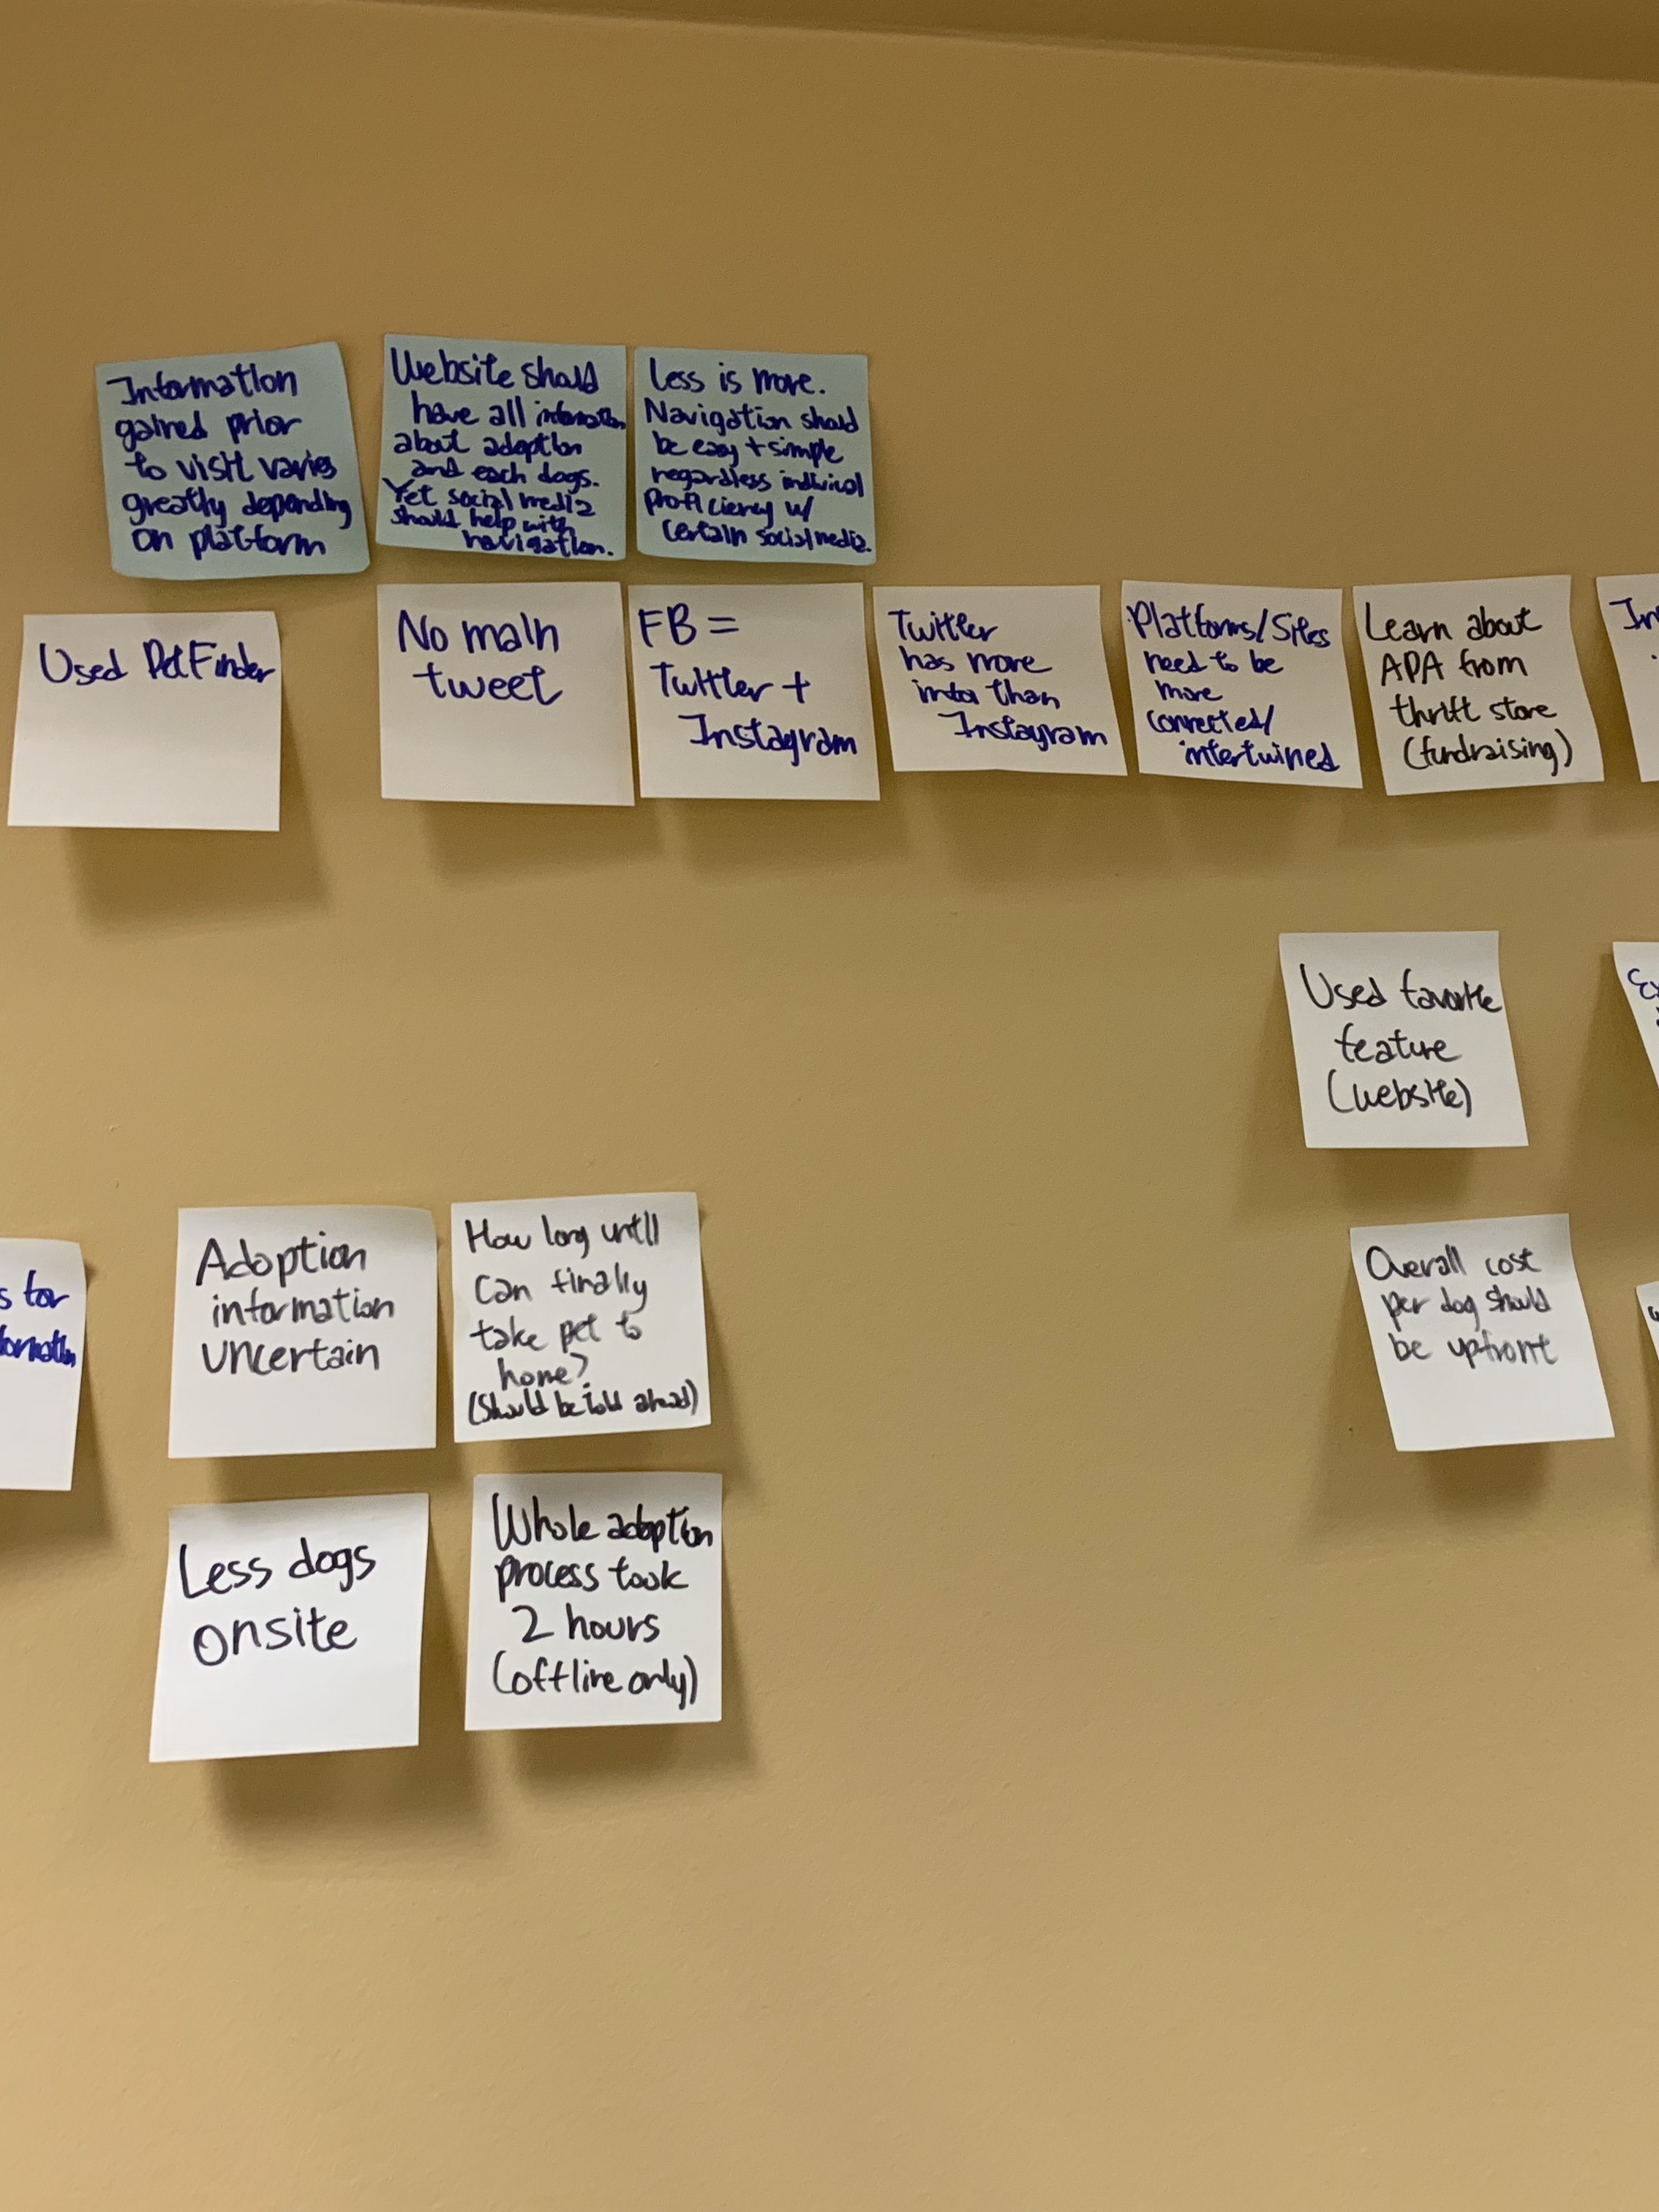 Information
gained prior
to visit varies
greatly depending
on platform
Website should
have all information
about adoption
and each dogs.
Yet social media
should help with
navigation.
Less is more.
Navigation should
be easy + simple
regardless
proficiency w/
certain social media.
Used PetFinder
No main
tweet
FB =
Twitter +
Instagram
Twitter
has more
info than
Instagram
Platforms/Sites
need to be
more
connected/
intertwined
Learn about
APA from
thrift store
(fundraising)
In
Used favorite
feature
(website)
Overall cost
per dog should
be upfront
s for
formation
Adoption
information
uncertain
How long until
can finally
take pet to
home?
(Should be told ahead)
Less dogs
onsite
Whole adoption
process took
2 hours
(offline only)